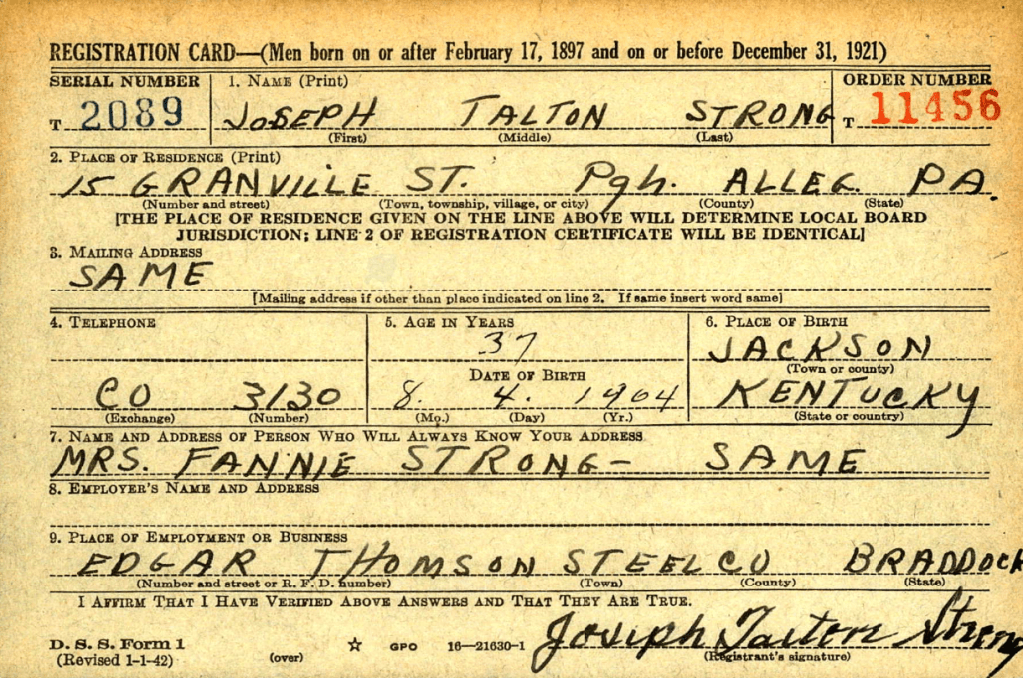 REGISTRATION CARD—(Men born on or after February 17, 1897 and on or before December 31, 1921)
SERIAL NUMBER 1. NAME (Print) ORDER NUMBER
T 2089 JOSEPH TALTON STRONG T 11456
(First) (Middle) (Last)
2. PLACE OF RESIDENCE (Print)
15 GRANVILLE ST. Pgh. ALLEG. PA.
(Number and street) (Town, township, village, or city) (County) (State)
[THE PLACE OF RESIDENCE GIVEN ON THE LINE ABOVE WILL DETERMINE LOCAL BOARD
JURISDICTION; LINE 2 OF REGISTRATION CERTIFICATE WILL BE IDENTICAL]
3. MAILING ADDRESS
SAME
[Mailing address if other than place indicated on line 2. If same insert word same]
4. TELEPHONE 5. AGE IN YEARS 6. PLACE OF BIRTH
37 JACKSON
DATE OF BIRTH (Town or county)
CO 3130 8. 4. 1904 KENTUCKY
(Exchange) (Number) (Mo.) (Day) (Yr.) (State or country)
7. NAME AND ADDRESS OF PERSON WHO WILL ALWAYS KNOW YOUR ADDRESS
MRS. FANNIE STRONG- SAME
8. EMPLOYER'S NAME AND ADDRESS
9. PLACE OF EMPLOYMENT OR BUSINESS
EDGAR THOMSON STEEL CO BRADDOCK
(Number and street or R. F. D. number) (Town) (County) (State)
I AFFIRM THAT I HAVE VERIFIED ABOVE ANSWERS AND THAT THEY ARE TRUE.
D. S. S. Form 1
(Revised 1-1-42) (over) ☆ GPO 16—21630-1 Joseph Talton Strong
(Registrant's signature)